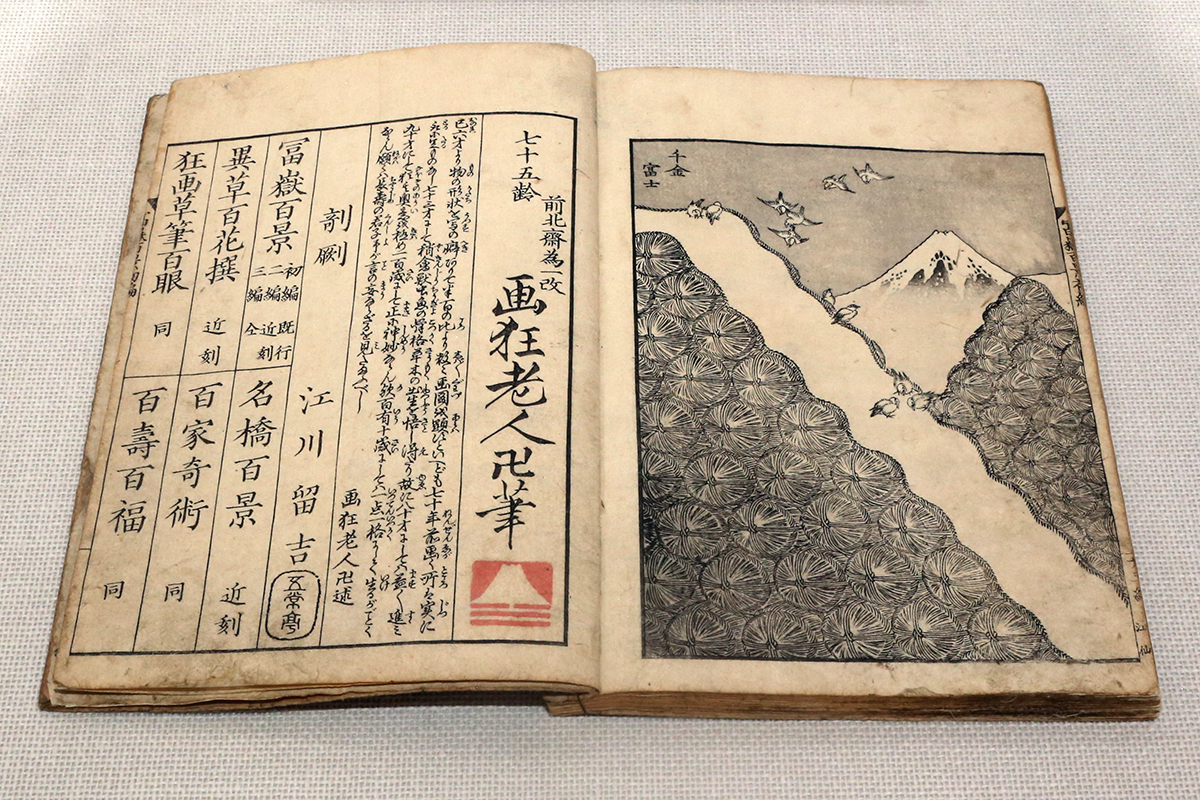 千金
富士
七十五齢
前北斎為一改
画狂老人卍筆
己六才より物の形状を写の癖ありて半百の比より数々画図を顕すといへども七十年前画く所は実に
取に足ものなし七十三才にして稍禽獣虫魚の骨格草木の出生を悟し得たり故に八十才にしては益々進み
九十才にして猶其奥意を極め一百歳にして正に神妙ならん歟百有十歳にしては一点一格にして生るがごとく
ならん願くは長寿の君子予が言の妄ならざるを見たまふべし
画狂老人卍述
剞劂
江川留吉
五常亭
冨嶽百景
初編 既行
二編 近刻
三編 全
名橋百景 近刻
異草百花撰 近刻
百家奇術 同
狂画草筆百眼 同
百壽百福 同